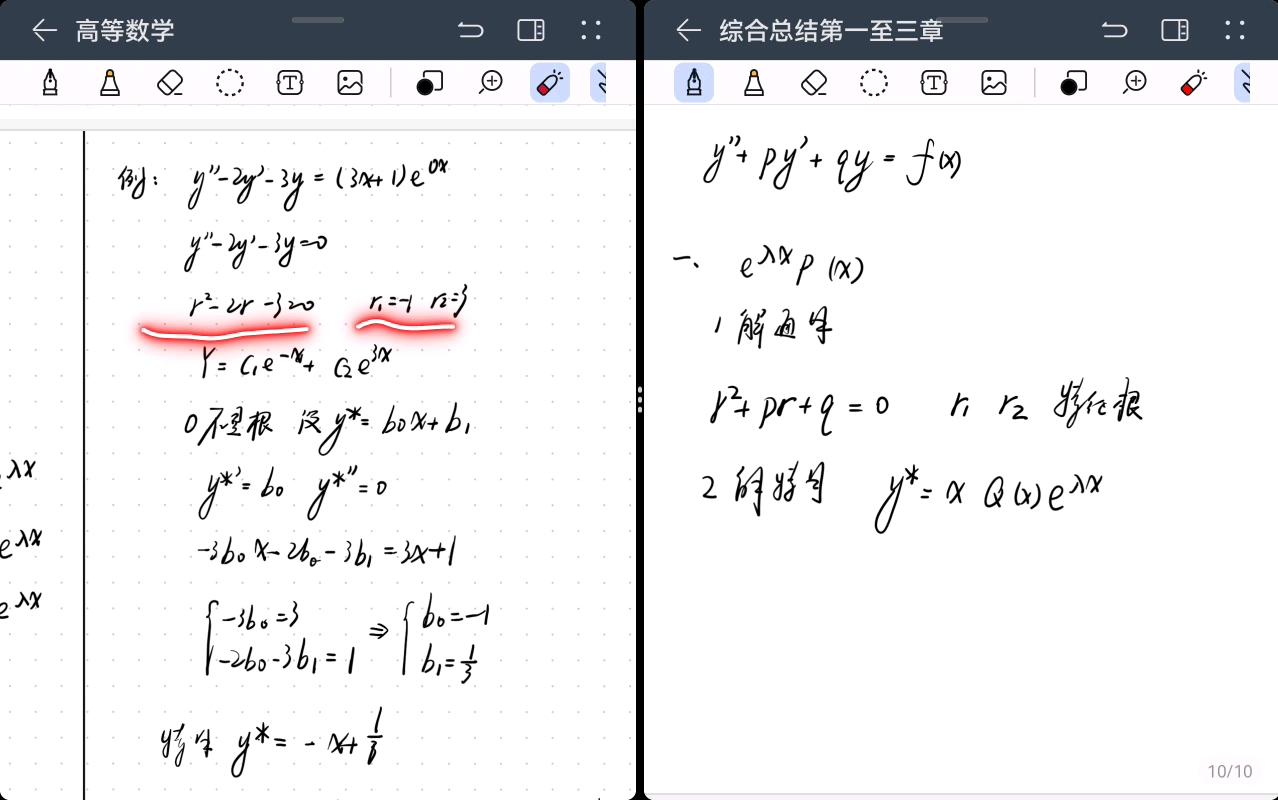 高等数学
例: y''-2y'-3y=(3x+1)e^{0x}
y''-2y'-3y=0
r²-2r-3=0 r₁=-1 r₂=3
Y=C₁e^{-x}+C₂e^{3x}
0不是根 设y*=b₀x+b₁
y*'=b₀ y*''=0
-3b₀x-2b₀-3b₁=3x+1
{-3b₀=3 ⇒ {b₀=-1
-2b₀-3b₁=1 b₁=1/3
特解 y*=-x+1/3
λx
e^{λx}
e^{λx}
综合总结第一至三章
y''+py'+qy=f(x)
一、 e^{λx}P(x)
1解通解
r²+pr+q=0 r₁ r₂ 特征根
2解特解 y*=x Q(x)e^{λx}
10/10